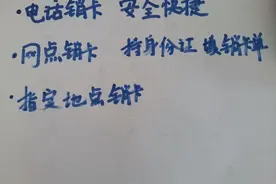 ·电话销卡 安全快捷
·网点销卡 持身份证 填销卡单
·指定地点销卡